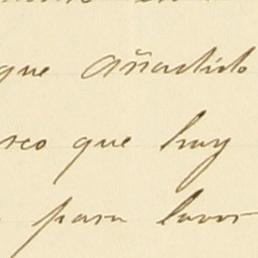 que añadido
reo que hay
para lavar